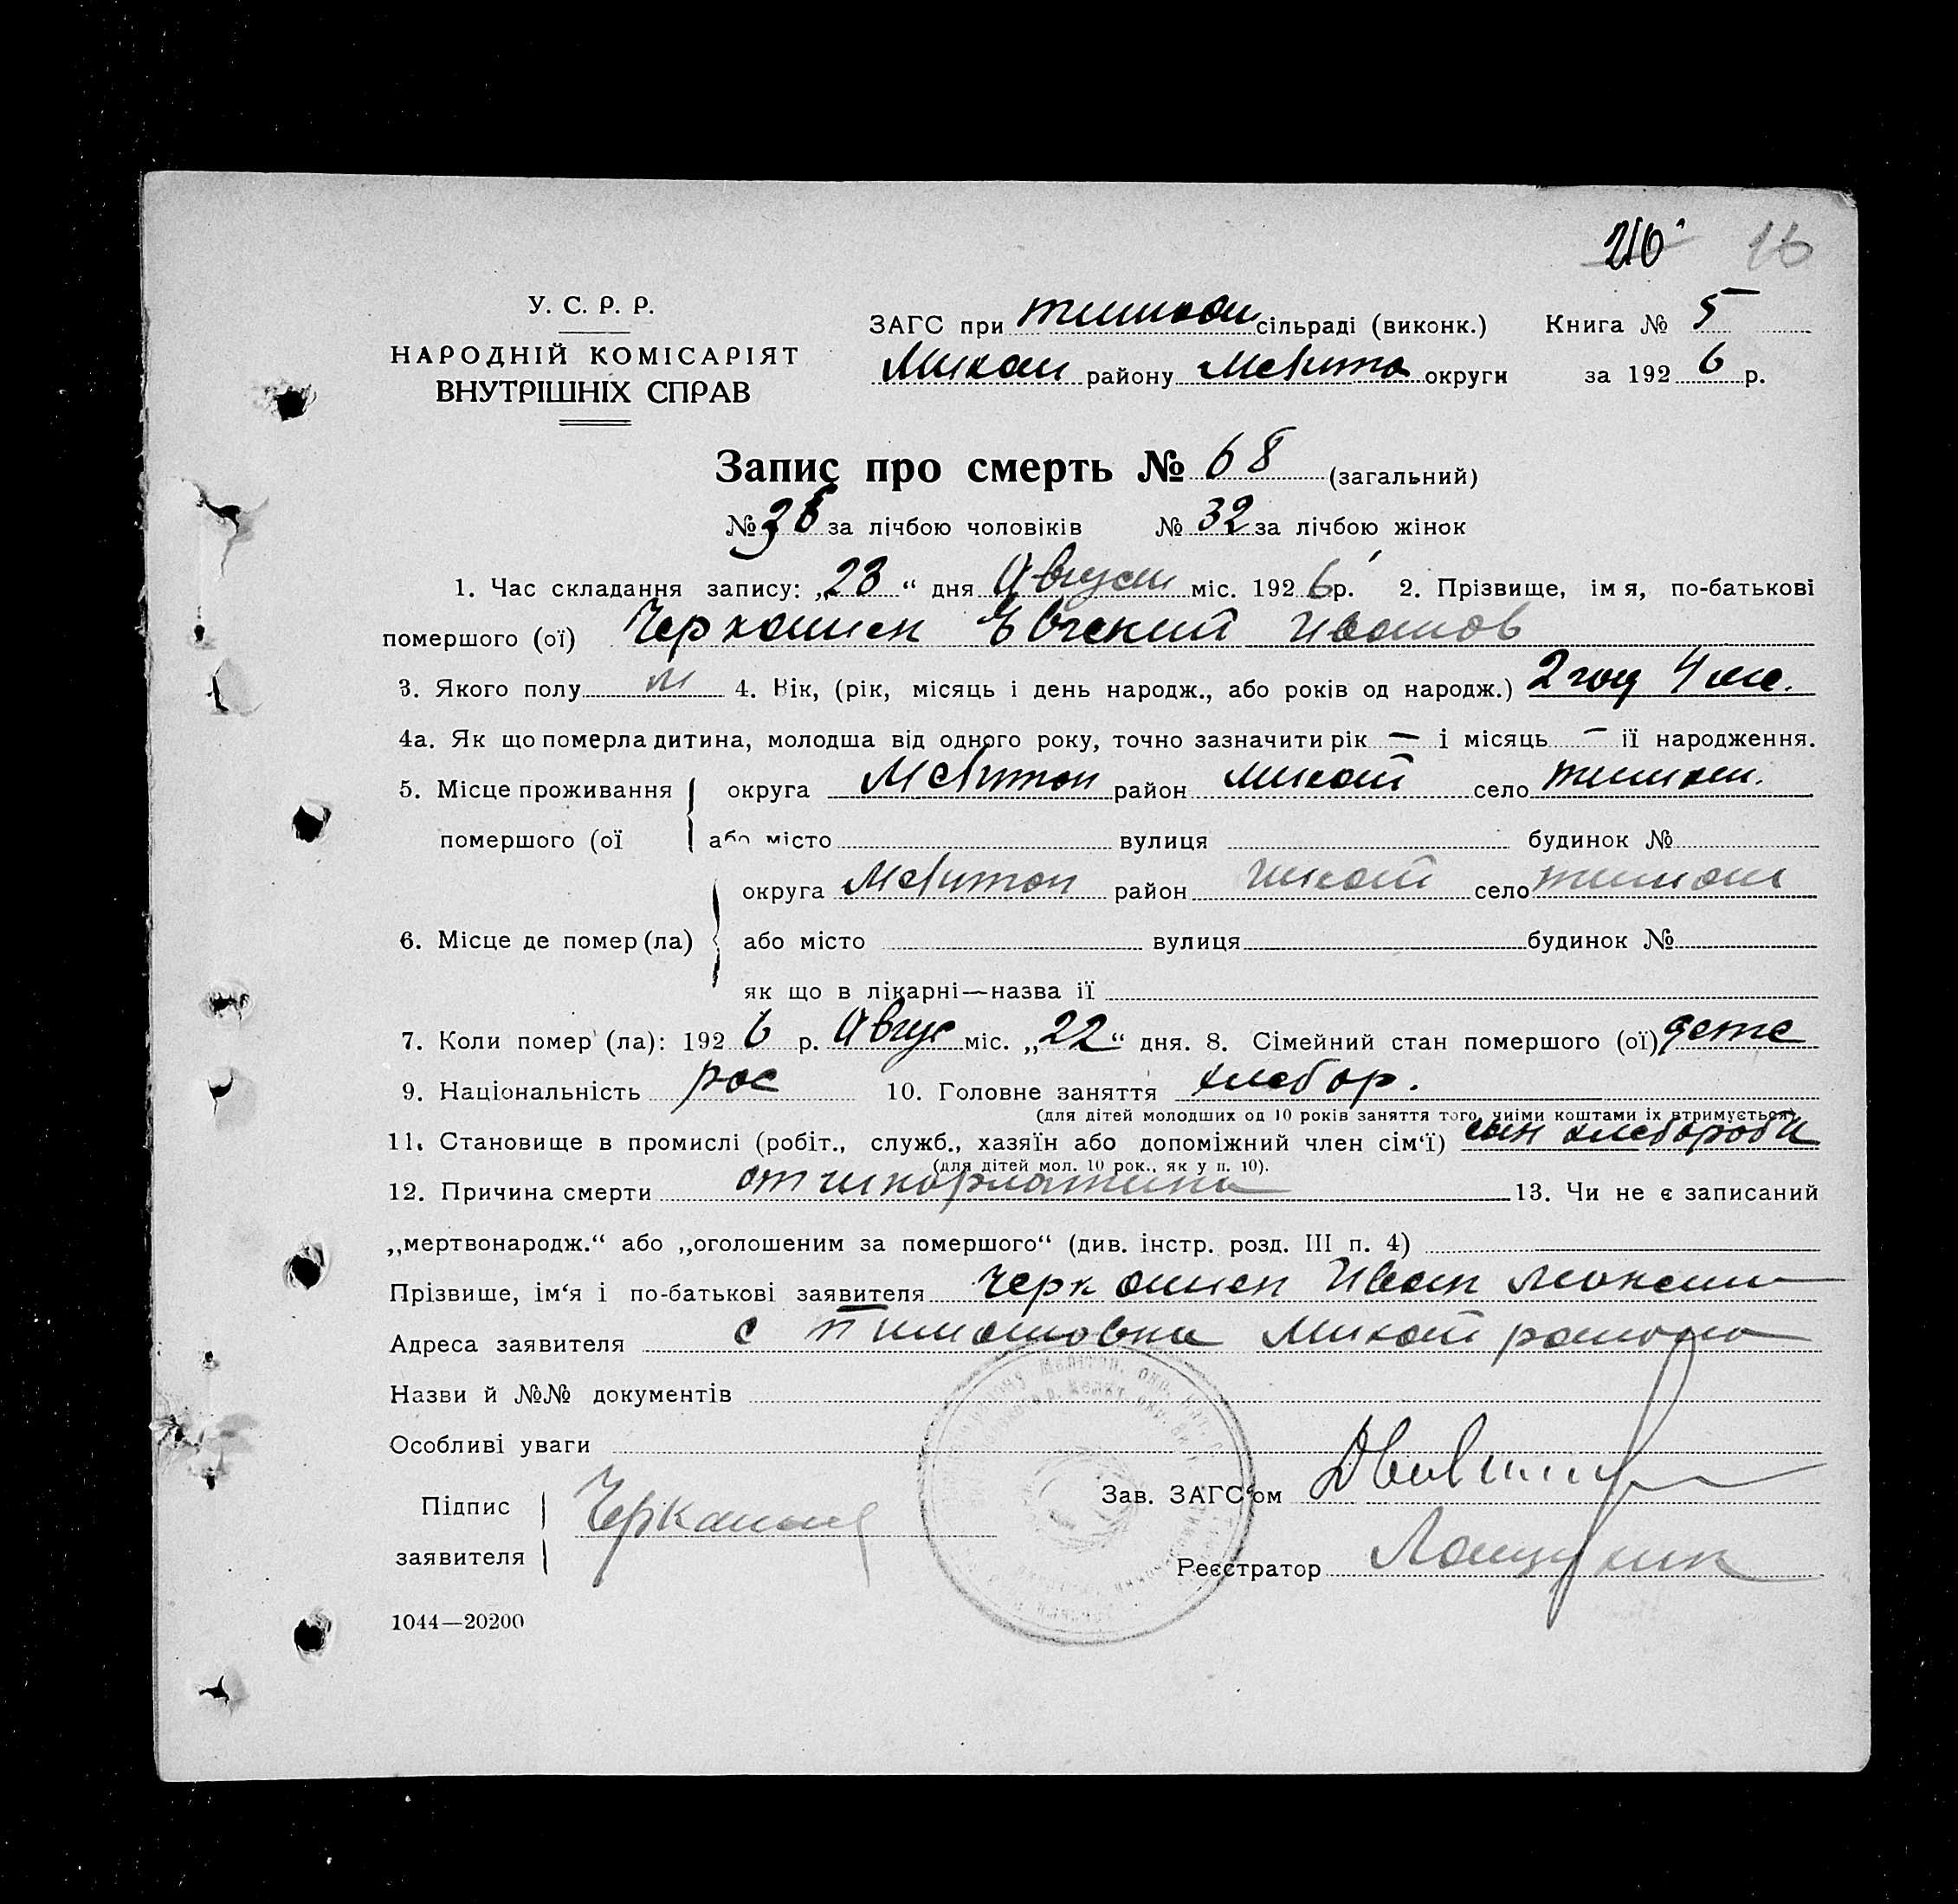 16
У. С. Р. Р.
НАРОДНІЙ КОМІСАРІЯТ
ВНУТРІШНІХ СПРАВ
ЗАГС при тимош сільраді (виконк.) Книга № 5
Михай району Мелито округи за 192 6 р.
Запис про смерть № 68 (загальний)
№ 36 за лічбою чоловіків № 32 за лічбою жінок
1. Час складання запису: „23“ дня Август міс. 192 6 р. 2. Прізвище, імя, по-батькові
помершого (ої) Евгений Иванов
3. Якого полу м 4. Вік, (рік, місяць і день народж., або років од народж.) 2 год 4 ме.
4а. Як що померла дитина, молодша від одного року, точно зазначити рік — і місяць — її народження.
5. Місце проживання округа Мелитоп район михай село тимош.
помершого (ої або місто вулиця будинок №
округа Мелитоп район михай село тимош
6. Місце де помер (ла) або місто вулиця будинок №
як що в лікарні—назва її
7. Коли помер (ла): 192 6 р. Авгус міс. „22“ дня. 8. Сімейний стан помершого (ої) дете
9. Національність рос 10. Головне заняття хлебор.
(для дітей молодших од 10 років заняття того, чиїми коштами їх втримується)
11. Становище в промислі (робіт., служб., хазяїн або допоміжний член сім‘ї) сын хлебороба
(для дітей мол. 10 рок., як у п. 10).
12. Причина смерти от 13. Чи не є записаний
„мертвонародж.“ або „оголошеним за помершого“ (див. інстр. розд. III п. 4)
Прізвише, ім‘я і по-батькові заявителя Иван
Адреса заявителя с Тимошовка Михай района
Назви й №№ документів
Особливі уваги
Підпис
заявителя
Зав. ЗАГС‘ом
Реєстратор
1044—20200